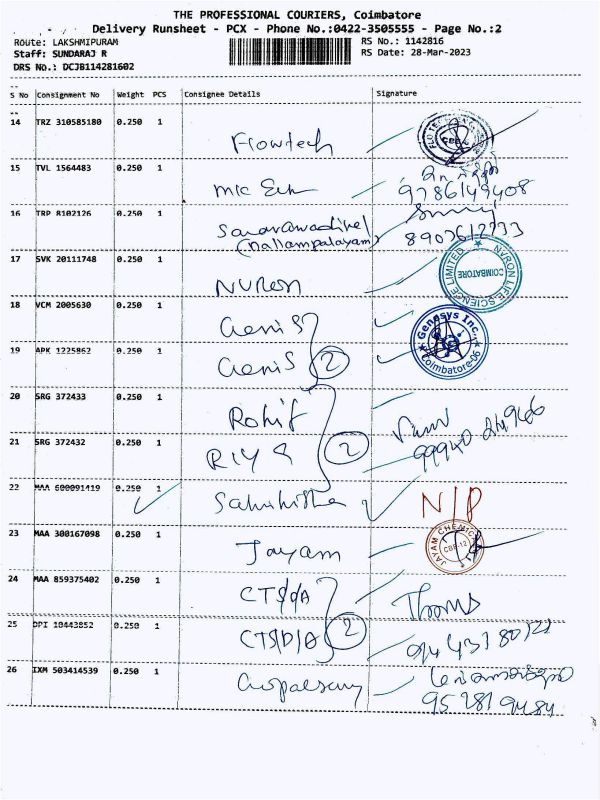 THE PROFESSIONAL COURIERS, Coimbatore
Delivery Runsheet - PCX - Phone No.:0422-3505555 - Page No.:2
Route: LAKSHMIPURAM
RS No.: 1142816
Staff: SUNDARAJ R
RS Date: 28-Mar-2023
DRS No.: DCJB114281602
S No Consignment No Weight PCS Consignee Details Signature
14 TRZ 310585180 0.250 1
Flowtech
15 TVL 1564483 0.250 1
9786149408
16 TRP 8102126 0.250 1
(Nallampalayam)
8903612733
17 SVK 20111748 0.250 1
NVRON LIFE SCIENCE LIMITED
COIMBATORE
Nvron
18 VCM 2005630 0.250 1
Genis
Genesys Inc.,
Coimbatore-06
19 APK 1225862 0.250 1
Genis 2
20 SRG 372433 0.250 1
Rohit
21 SRG 372432 0.250 1
Riya 2
22 MAA 600091419 0.250 1
N/P
23 MAA 300167098 0.250 1
Jayam
JAYAM CHEMICALS
CBE-12
24 MAA 859375402 0.250 1
Thomas
25 DPI 10443852 0.250 1
2
26 IXM 503414539 0.250 1
Gopalsamy